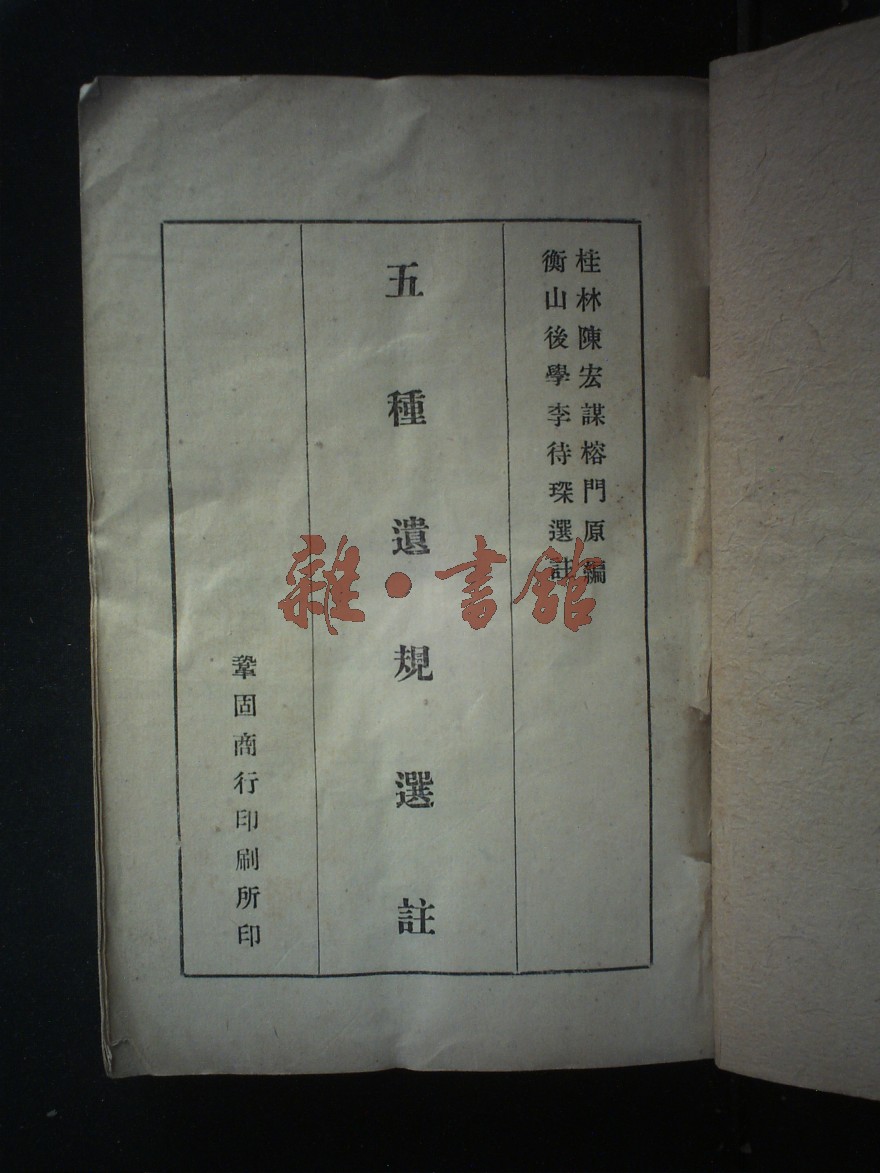 桂林陳宏謀榕門原編
衡山後學李待琛選註
五種遺規選註
鞏固商行印刷所印
雜·書館